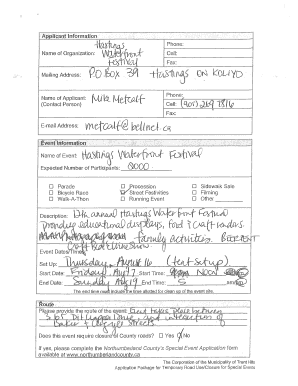 Applicant Information
Name of Organization: Hastings Waterfront Festival
Phone:
Cell:
Fax:
Mailing Address: PO Box 39 Hastings ON K0L1Y0
Name of Applicant: Mike Metcalf
(Contact Person)
Phone:
Cell:
Fax:
E-mail Address: metcalf@bellnet.ca
Event Information
Name of Event: Hastings Waterfront Festival
Expected Number of Participants: 8000
Parade Procession Sidewalk Sale
Bicycle Race Street Festivities Filming
Walk-A-Thon Running Event Other
Description: 12th annual Hastings Waterfront Festival
Providing educational displays, food & craft vendors
family activities
Event Dates/Times:
Set Up: Thursday August 16 (tent setup)
Start Date: Friday Aug 17 Start Time: Noon
End Date: Sunday Aug 19 End Time: 5
The end time must include the time allotted for clean up of the event site.
Route
Please provide the route of the event
Streets
Does this event require closure of County roads? Yes No
If yes, please complete the Northumberland County's Special Event Application form
available at www.northumberlandcounty.ca
The Corporation of the Municipality of Trent Hills
Application Package for Temporary Road Use/Closure for Special Events